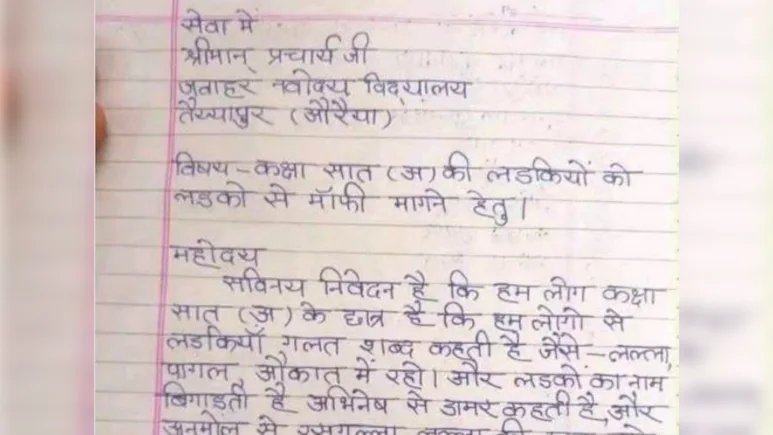 सेवा में
श्रीमान् प्रचार्य जी
जवाहर नवोदय विद्यालय
तैय्यापुर (औरैया)
विषय - कक्षा सात (अ) की लडकियों को
लडको से मॉफी मागने हेतु।
महोदय
सविनय निवेदन है कि हम लोग कक्षा
सात (अ) के छात्र है कि हम लोगो से
लडकियाँ गलत शब्द कहती है जैसे - लल्ला,
पागल, औकात में रहो। और लडकों का नाम
बिगाडती है अभिनेष से डामर कहती है, और
अनमोल से रसगुल्ला, लल्ला